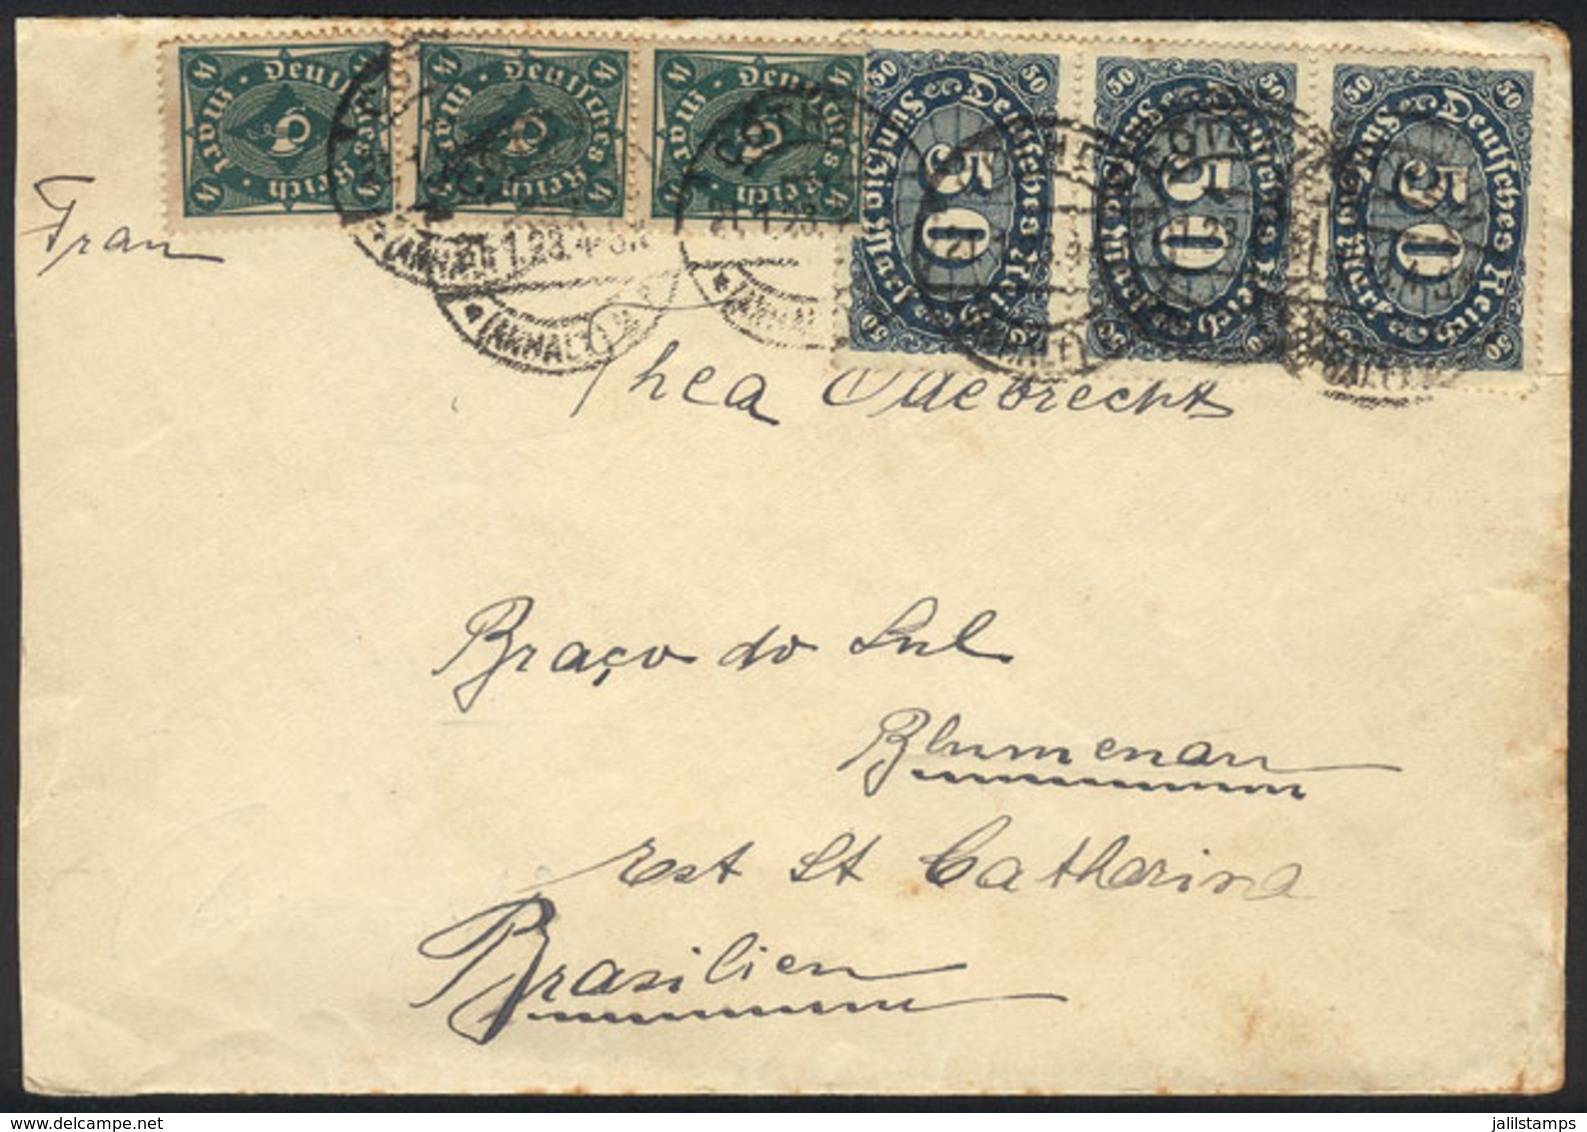 4 Deutsches Reich 4 Mark 4 4
4 Deutsches Reich 4 Mark 4 4
4 Deutsches Reich 4 Mark 4 4
50 Deutsches Reich 50 Fünfzig Mark 50
50 Deutsches Reich 50 Fünfzig Mark 50
50 Deutsches Reich 50 Fünfzig Mark 50
(ANHALT) 21.1.23.4-5N
(ANHALT)
21.1.23.
Frau
Thea Odebrecht
Braço do Sul
Blumenau
Est St Catharina
Brasilien
jalilstamps